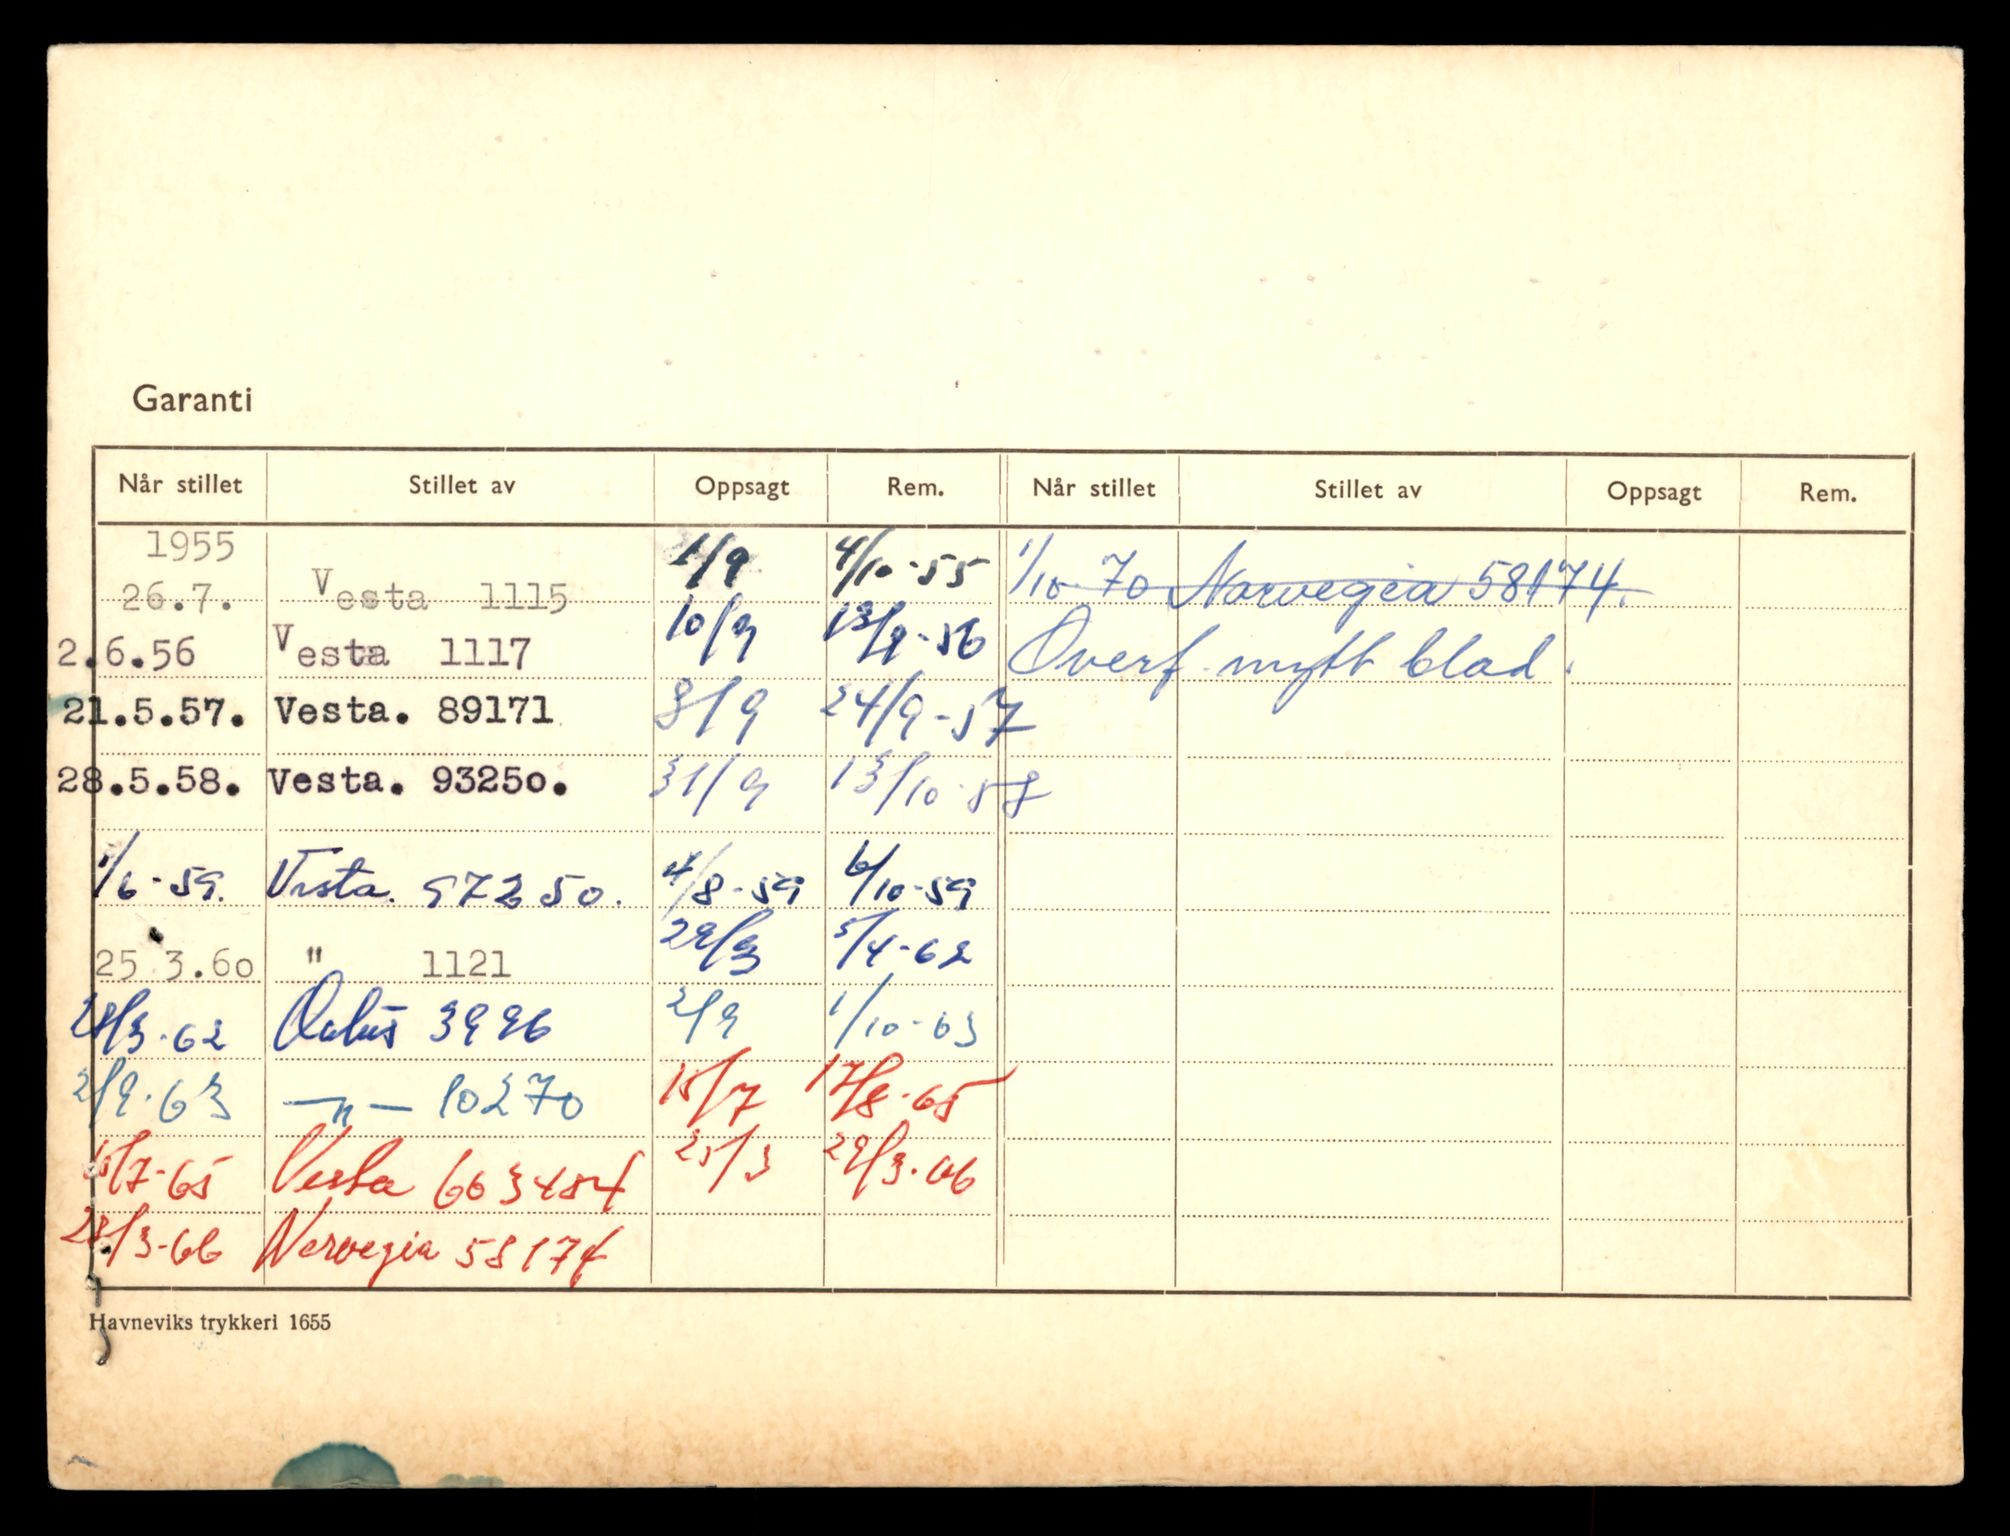 Garanti
Når stillet Stillet av Oppsagt Rem. Når stillet Stillet av Oppsagt Rem.
1955
26.7. Vesta 1115 1/9 4/10-55 1/10-70 Norvegia 58174.
2.6.56 Vesta 1117 10/9 13/9-56 Overf. nytt blad.
21.5.57. Vesta. 89171 8/9 24/9-57
28.5.58. Vesta. 93250. 31/9 13/10-58
1/6-59. Vesta. 97250. 4/8-59 6/10-59
25 3.60 " 1121 29/3 5/4-62
28/3-62 3996 2/9 1/10-63
2/9-63 —"— 10270 15/7 17/8-65
15/7-65 Vesta 663484 25/3 29/3-66
28/3-66 Norvegia 58174
Havneviks trykkeri 1655